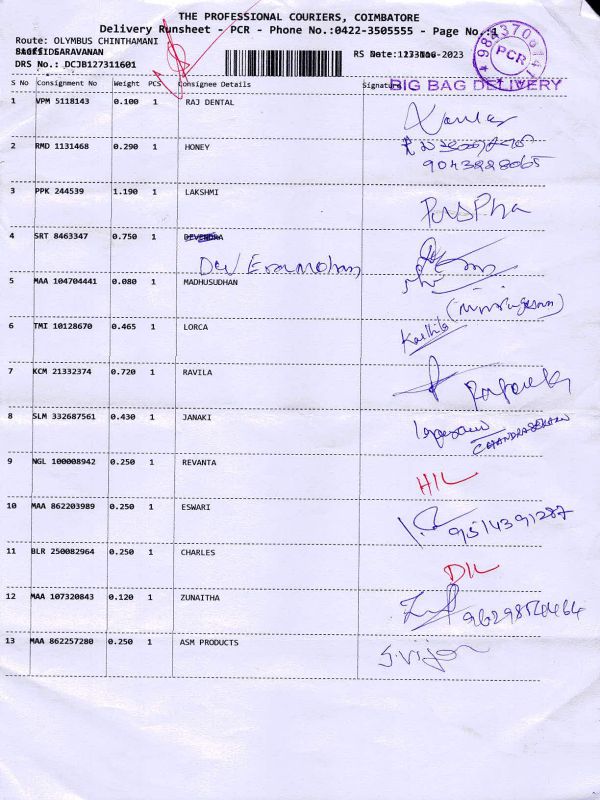 THE PROFESSIONAL COURIERS, COIMBATORE
Delivery Runsheet - PCR - Phone No.:0422-3505555 - Page No.:1
Route: OLYMBUS CHINTHAMANI
SARAVANAN
DRS No.: DCJB127311601
RS Date:
PCR
BIG BAG DELIVERY
S No Consignment No Weight PCS Consignee Details Signature
1 VPM 5118143 0.100 1 RAJ DENTAL
2 RMD 1131468 0.290 1 HONEY
9043228065
3 PPK 244539 1.190 1 LAKSHMI PUSPha
4 SRT 8463347 0.750 1 DEVENDRA
5 MAA 104704441 0.080 1 MADHUSUDHAN
(Murugesan)
6 TMI 10128670 0.465 1 LORCA
7 KCM 21332374 0.720 1 RAVILA
8 SLM 332687561 0.430 1 JANAKI
CHANDRASEKARAN
9 NGL 100008942 0.250 1 REVANTA
HIL
10 MAA 862203989 0.250 1 ESWARI 9514391287
11 BLR 250082964 0.250 1 CHARLES
DIL
12 MAA 107320843 0.120 1 ZUNAITHA
13 MAA 862257280 0.250 1 ASM PRODUCTS